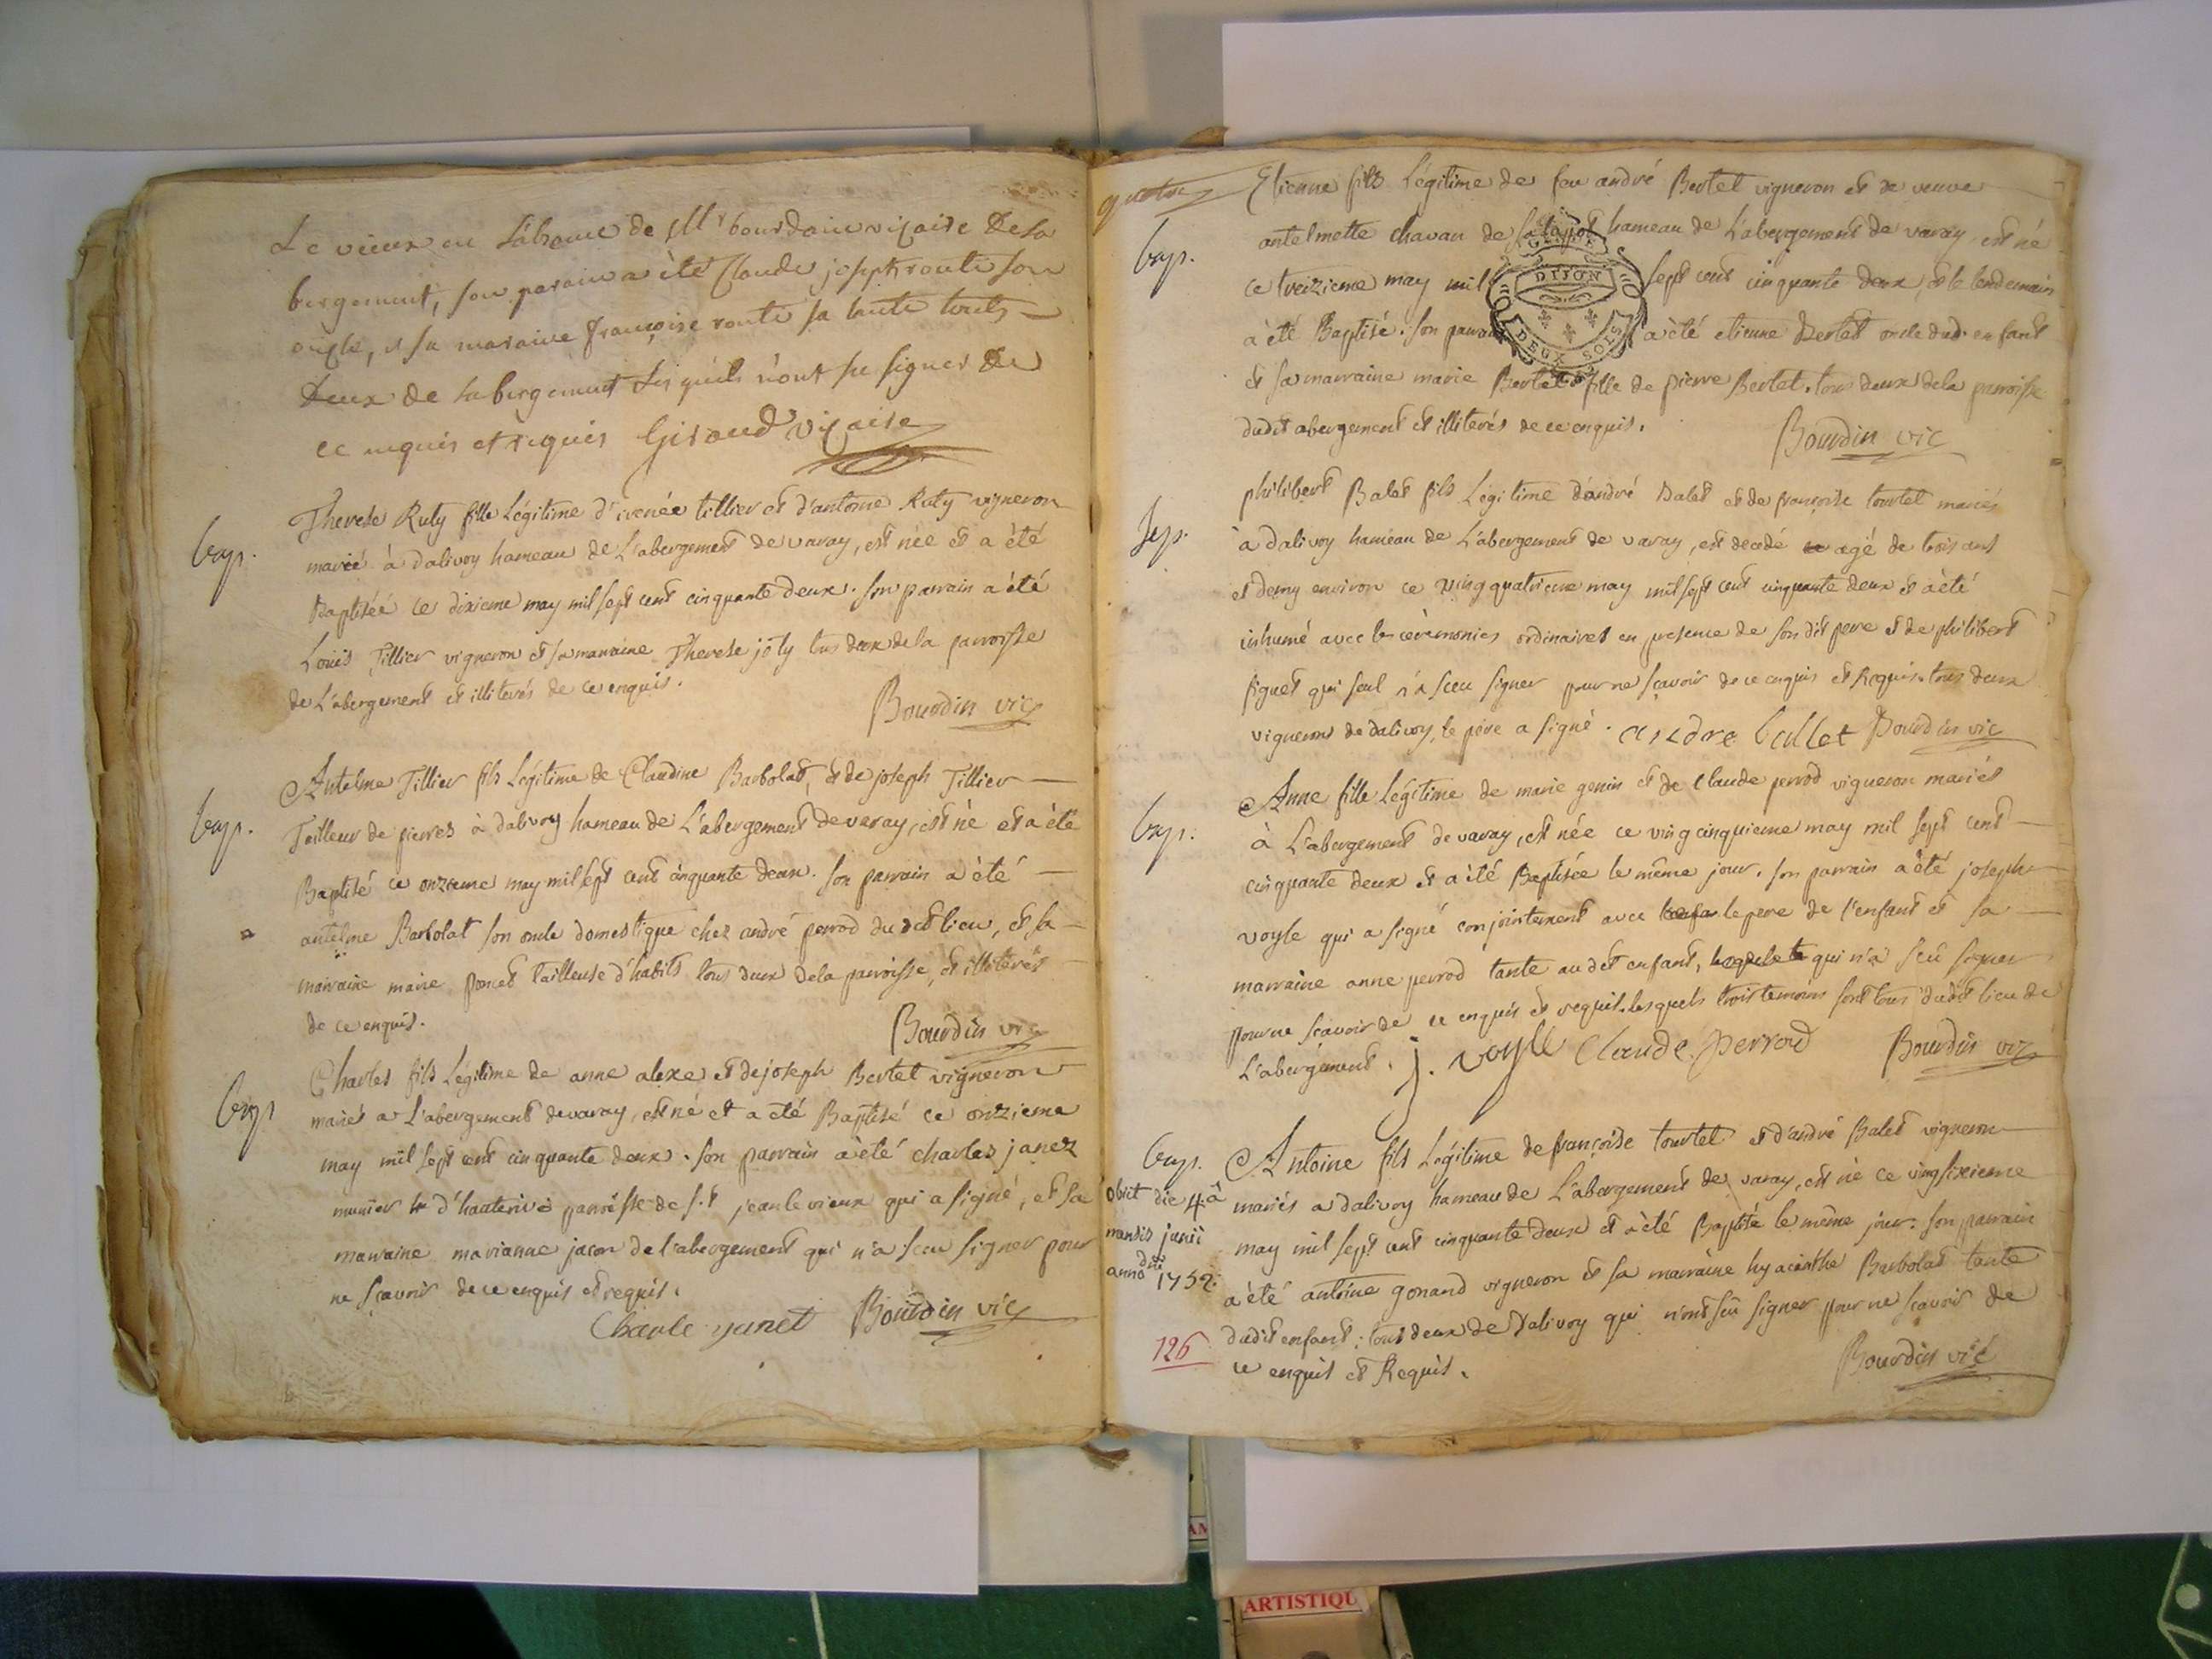 Le vieux en l'absence de Mr bourdain vicaire de la
bergement, son parain a èté Claude joseph route son
oncle, et sa maraine françoise route sa tante touts
deux de labergement lesquels n'ont su signer de
ce enquis et requis Giroud vicaire
bap.
Therese Ruty fille Légitime d'irenée tillier et d'antoine Ruty vigneron
mariés à dalivoy hameau de L'abergement de varay, est née et a été
Baptiséé ce dixieme may mil sept cent cinquante deux. son parrain a èté
Loüis Tillier vigneron et sa marraine Therese joly tous deux de la parroisse
de L'abergement et illiterés de ce enquis.
Bourdin vic
bap.
Antelme Tillier fils Légitime de Claudine Barbolat, et de joseph Tillier
Tailleur de pierres à dalivoy hameau de L'abergement de varay, est né et a èté
Baptisé ce onzieme may mil sept cent cinquante deux. son parrain a èté
antelme Barbolat son oncle domestique chez andré perrod du dit lieu, et sa
marraine marie poncet tailleuse d'habits tous deux de la parroisse, et illiterés
de ce enquis.
Bourdin vic
bap
Charles fils Légitime de anne alexe et de joseph Bertet vigneron
mariés a L'abergement de varay, est né et a été Baptisé ce onzieme
may mil sept cent cinquante deux. son parrain a èté charles janez
munier d'hauterive parroisse de s.t jean le vieux qui a signé, et sa
marraine marianne jacon de l'abergement qui n'a sceu signer pour
ne sçavoir de ce enquis et requis.
Charle janet Bourdin vic
quatre
Etienne fils Légitime de feu andré Bertet vigneron et de veuve
bap.
antelmette chavan de hameau de L'abergement de varay est né
ce treizieme may mil sept cent cinquante deux, et le lendemain
à été Baptisé. son parrain a èté etienne Bertet oncle dud. enfant
et sa marraine marie Bertet fille de pierre Bertet. tous deux de la parroisse
dudit abergement et illiterés de ce enquis.
DIJON
DEUX SOLS
Bourdin vic
Sep.
philibert Balet fils Légitime d'andré Balet et de françoise tourtet mariés
à dalivoy hameau de L'abergement de varay, est decedé agé de trois ans
et demy environ ce vingquatrieme may mil sept cent cinquante deux et a èté
inhumé avec les cerémonies ordinaires en presence de son dit pere et de philibert
figuet qui seul n'a sceu signer pour ne sçavoir de ce enquis et Requis. tous deux
vignerons de dalivoy, le pére a signé. andre ballet Bourdin vic
bap.
Anne fille Légitime de marie genin et de Claude perrod vigneron mariés
à L'abergement de varay, est née ce vingcinquieme may mil sept cent
cinquante deux et a èté Baptisée le même jour. son parrain a èté joseph
voyle qui a signé conjointement avec le pere de l'enfant et sa
marraine anne perrod tante au dit enfant, qui n'a sceü signer
pour ne scavoir de ce enquis et requis. lesquels trois temoins sont tous dudit lieu de
L'abergement. j. voyle Claude perrod Bourdin vic
bap.
obiit die 4â
mensis junii
anno dni 1752.
Antoine fils Légitime de françoise tourtet et d'andré Balet vigneron
mariés a dalivoy hameau de L'abergement de varay, est né ce vingsixieme
may mil sept cent cinquante deux et a èté Baptisé le même jour. son parrain
a èté antoine gonand vigneron et sa marraine hyacinthe Barbolat tante
dudit enfant: tous deux de dalivoy qui n'ont sceü signer pour ne scavoir de
ce enquis et Requis.
Bourdin vic
126
ARTISTIQU